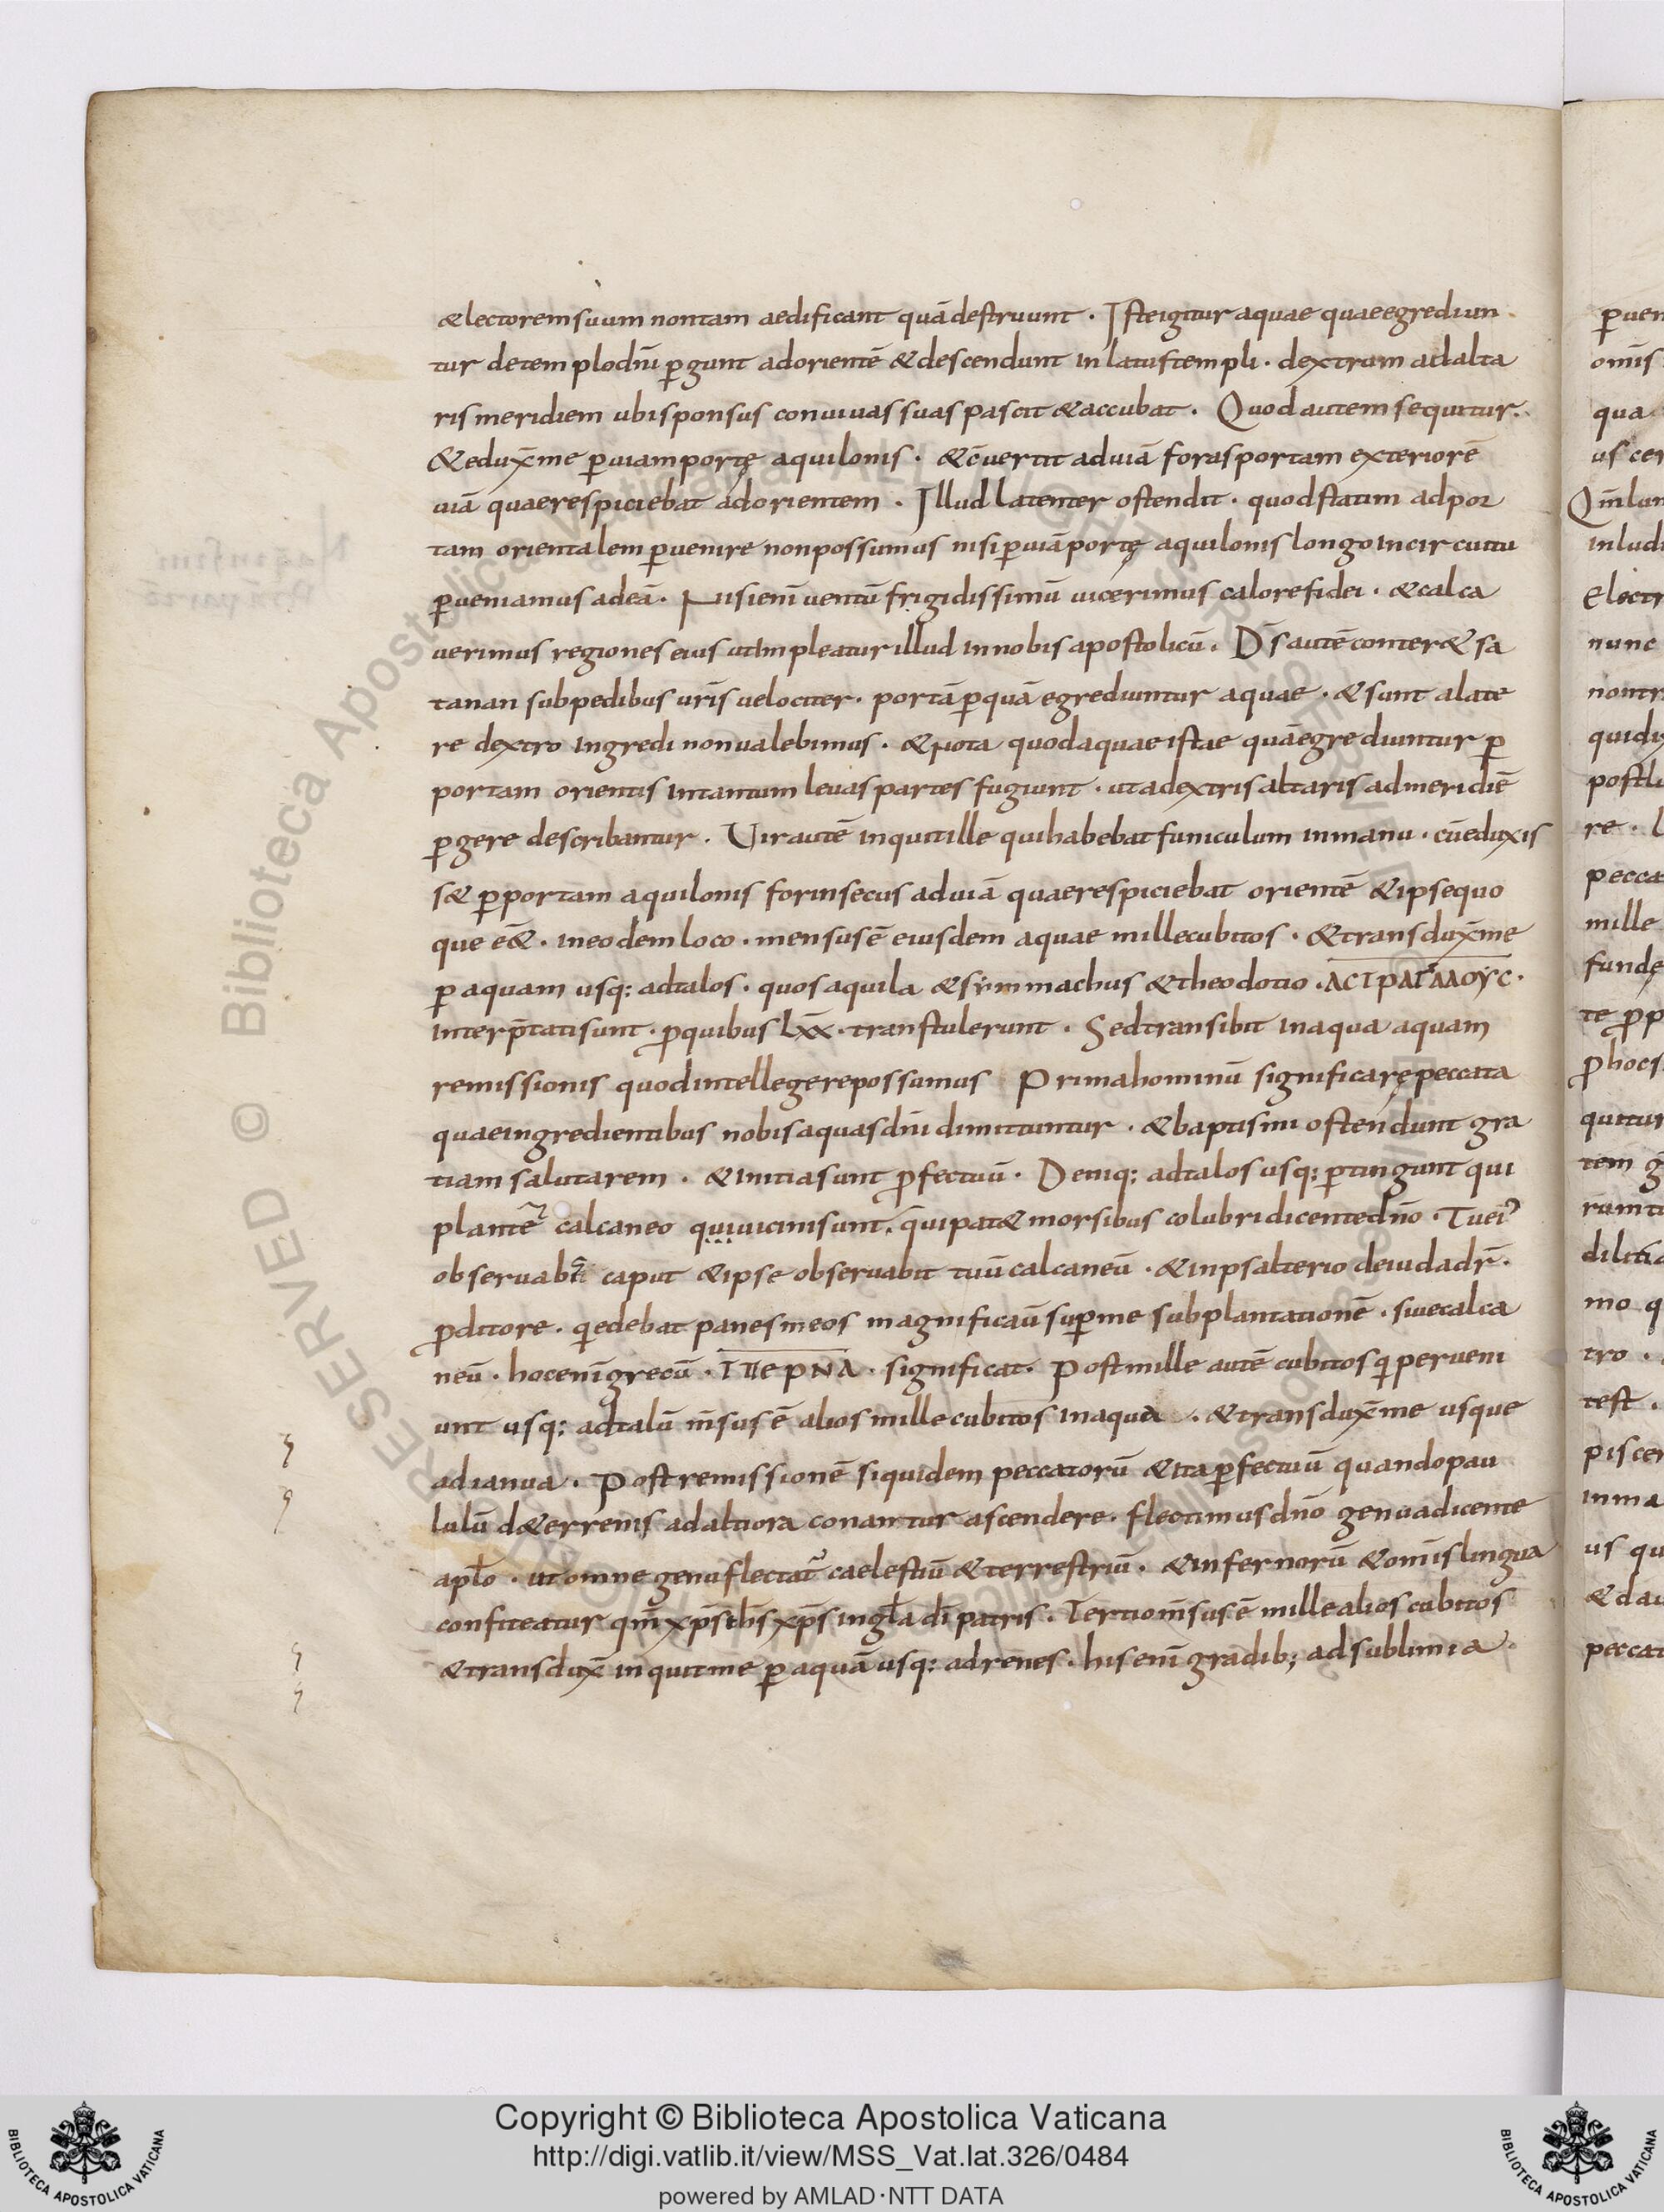 &lectorem suum non tam aedificant quā destruunt . Iste igitur aquae quae egrediun
tur de templo dn̄i ꝑgunt ad orientē & descendunt in latus templi . dextrum ad alta
ris meridiem ubi sponsus conuiuas suas pascit & accubat . Quod autem sequitur .
& edux̄ me ꝑ uiam portę aquilonis . & cūertit ad uiā foras portam exteriorē
uiā quae respiciebat ad orientem . Illud latenter ostendit . quod statim ad por
tam orientalem ꝑuenire non possumus nisi ꝑ uiā portę aquilonis longo in circuitu
ꝑueniamus ad eā . Nisi enī uentū frigidissimū uicerimus calore fidei . & calca
uerimus regiones eius ut impleatur illud in nobis apostolicū . Dˉs autē conter& sa
tanan sub pedibus ur̄is uelociter . portā ꝑ quā egrediuntur aquae . & sunt a late
re dextro ingredi non ualebimus . & nota quod aquae istae quā egrediuntur ꝑ
portam orientis in tantum leuas partes fugiunt . ut a dextris altaris ad meridiē
ꝑgere describantur . Uir autē inquit ille qui habebat funiculum in manu . cū eduxis
s& ꝑ portam aquilonis forinsecus ad uiā quae respiciebat orientē & ipse quo
que ē& . in eodem loco . mensus ē eiusdem aquae mille cubitos . & transdux̄ me
ꝑ aquam usq: ad talos . quos aquila & simmachus & theodotio . ΑCΤΡΑΓΑΛΟΥC .
interp̄tati sunt . p̄ quibus lxx . transtulerunt . Sed transibit in aqua aquam
remissionis quod intellegere possumus Prima hominū significarę peccata
quae ingredientibus nobis aquas dn̄i dimittuntur . & baptismi ostendunt gra
tiam salutarem . & initia sunt ꝓfectuū . Deniq: ad talos usq: ꝑtingunt qui
plantę calcaneo qui uicini sunt . qui pat& morsibus colubri dicente dn̄o . Tu ei'
obseruab caput & ipse obseruabit tuū calcaneū . & in psalterio de iuda dr̄ .
ꝓditore . qi edebat panes meos magnificaū suꝑ me subplantationē . siue calca
neū . hoc enī grecū . ΠΤΕΡΝΑ . significat . Post mille autē cubitos qi perueni
unt usq: ad talū m̄sus ē alios mille cubitos in aqua . & transdux̄ me usque
ad ianua . Post remissionē siquidem peccatorū & ita ꝓfectuū quando pau
lulū d& errenis ad altiora conantur ascendere . flectimus dn̄o genua dicente
apl̄o . ut omne genu flectat' caelestiū & terrestriū . & infernorū & omīs lingua
confiteatur qm̄ xp̄s ih̄s xp̄s in gl̄a dī patris . Tertio m̄sus ē mille alios cubitos
& transdux̄ inquit me ꝑ aquā usq: ad renes . his enī gradib; ad sublimia .
Copyright © Biblioteca Apostolica Vaticana
http://digi.vatlib.it/view/MSS_Vat.lat.326/0484
powered by AMLAD·NTT DATA
BIBLIOTECA APOSTOLICA VATICANA
BIBLIOTECA APOSTOLICA VATICANA